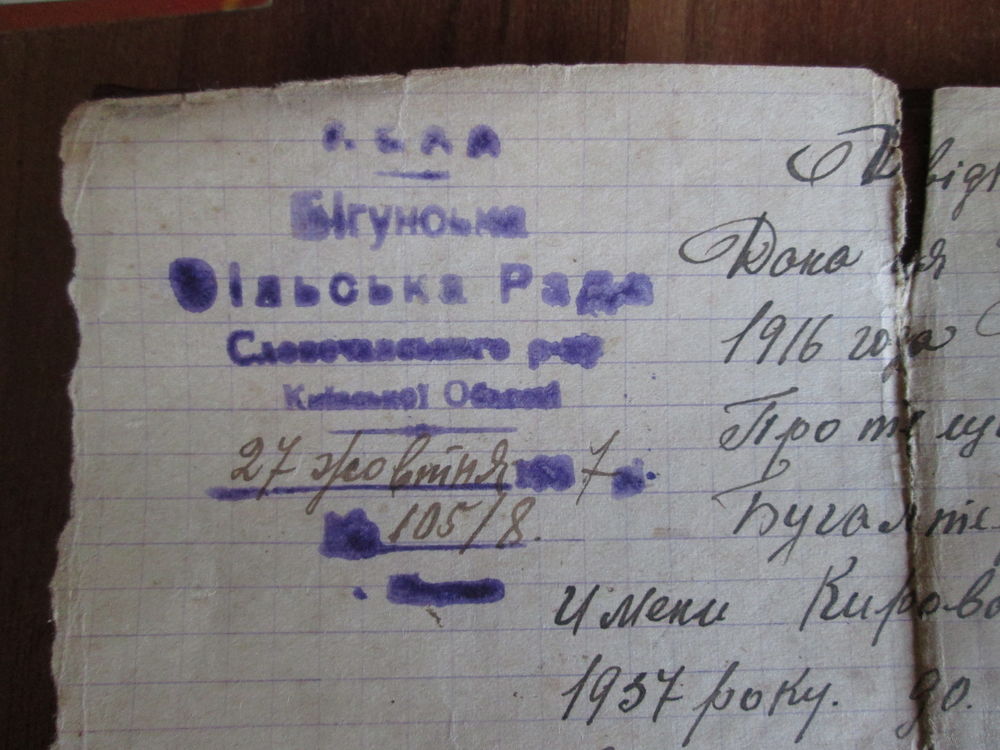 Бігунська
Сільська Рада
Словечанського р-ну
Київської Області
27 жовтня 7
105/8.
Довід
Дана ця
1916 года
Про те що
Бугалте
имени Кирова
1937 року. до.